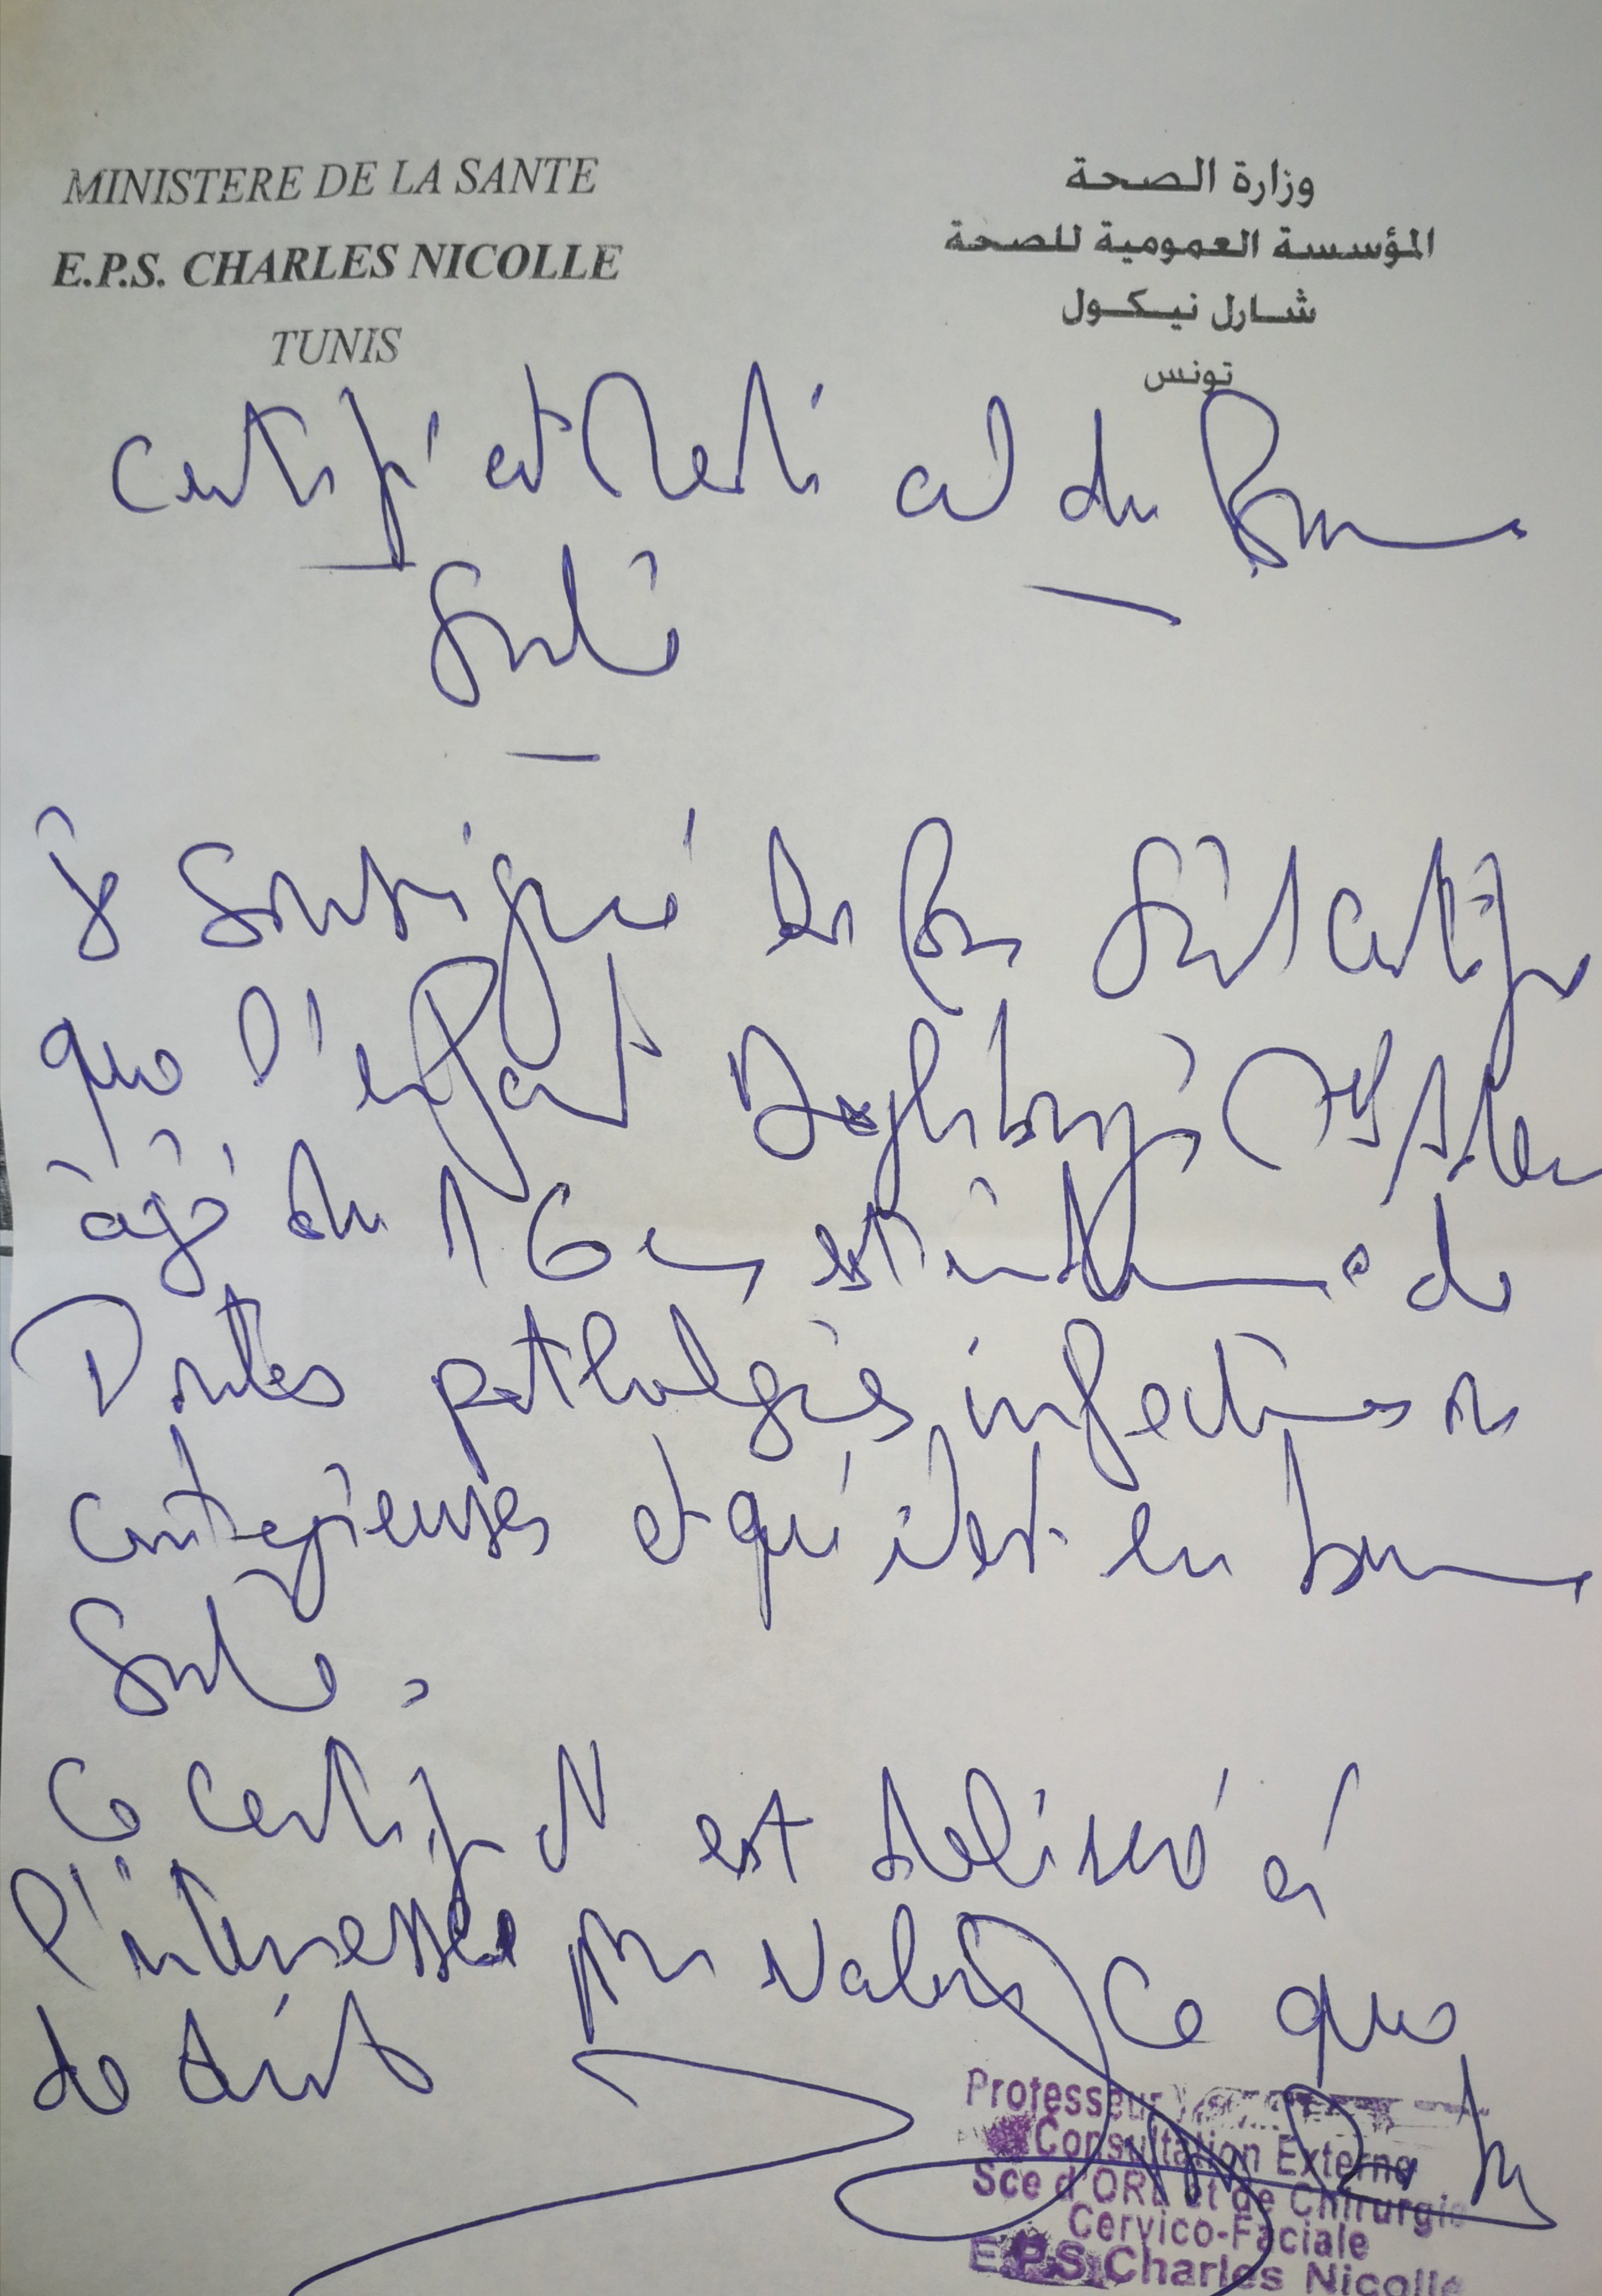 MINISTERE DE LA SANTE
E.P.S. CHARLES NICOLLE
TUNIS
وزارة الصحة
المؤسسة العمومية للصحة
شارل نيكول
تونس
Certificat Medical de Bonne
Santé
Je soussigné certifie
que l'enfant
âgé de 16 ans est indemne de
Toutes pathologies infectieuses ou
contagieuses et qu'il est en bonne
Santé.
Ce certificat est délivré à
l'interessé pour valoir ce que
de droit
Professeur
Consultation Externe
Sce d'ORL et de Chirurgie
Cervico-Faciale
E.P.S Charles Nicolle